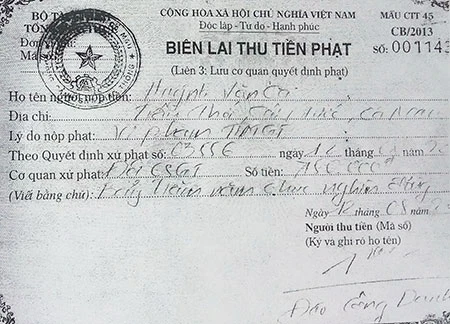 BỘ TÀ
CỘNG HÒA XÃ HỘI CHỦ NGHĨA VIỆT NAM
MẪU CTT 45
TỔN
Độc lập - Tự do - Hạnh phúc
CB/2013
Đơn
BIÊN LAI THU TIỀN PHẠT
Số: 001143
Mã số
(Liên 3: Lưu cơ quan quyết định phạt)
Họ tên người nộp tiền: Huỳnh Văn
Địa chỉ:
Lý do nộp phạt: Vi phạm TTATGT
Theo Quyết định xử phạt số: ngày 12 tháng năm 20
Cơ quan xử phạt: Đội CSGT Số tiền: 750.000đ
(Viết bằng chữ): Bảy trăm năm chục nghìn đồng
Ngày 12 tháng 03 năm
Người thu tiền (Mã số)
(Ký và ghi rõ họ tên)
Đào Công Danh